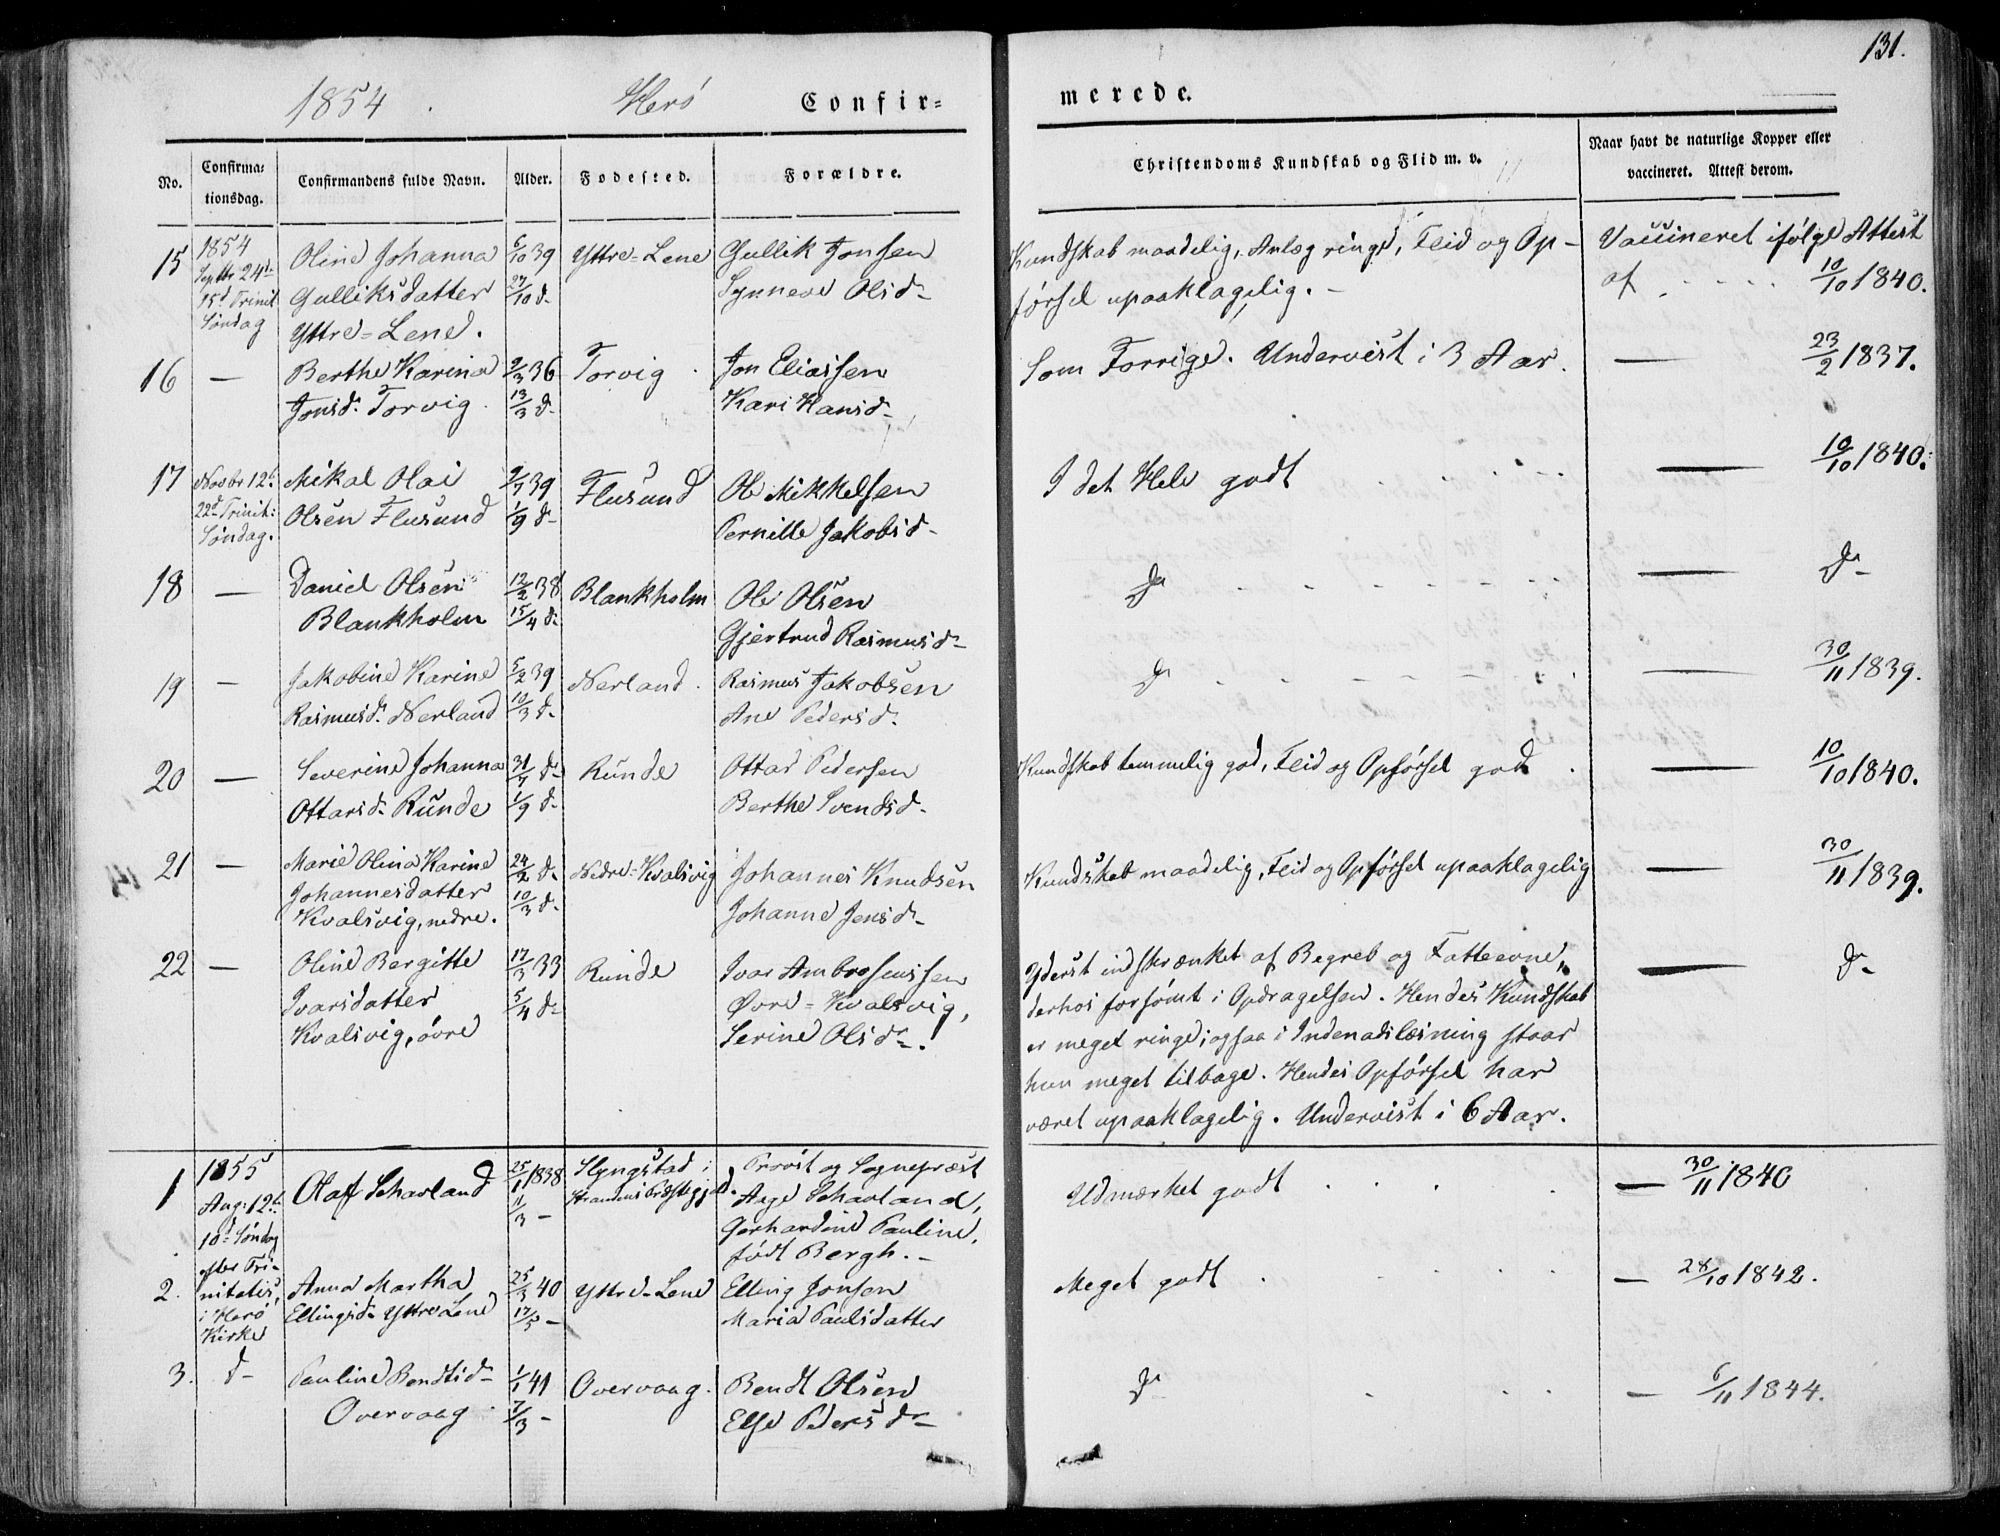 131.
1854. Herö Confir= merede.
No. Confirma=tionsdag. Confirmandens fulde Navn. Alder. Fødested. Forældre. Christendoms Kundskab og Flid m. v. Naar havt de naturlige Kopper eller vaccineret. Attest derom.
15 1854 Septbr 24de 15d Trinit Søndag
Oline Johanna
Gulliksdatter
Yttre=Lene.
6/10 39
27/10 d-
Yttre=Lene
Gullik Jonsen
Synneve Olsd-
Kundskab maadelig, Anlæg ringe, Flid og Op-
førsel upaaklagelig. -
Vaccineret ifølge Attest
af . . . . . 10/10 1840.
16 —
Berthe Karina
Jonsd. Torvig
9/3 36
13/3 d-
Torvig
Jon Eliassen
Kari Hansd-
Som Forrige. Underviist i 3 Aar.
— 23/2 1837.
17 Novbr 12te 22d Trinit: Søndag.
Mikal Olai
Olsen Flusund
9/7 39
1/9 d-
Flusund
Ole Mikkelsen
Pernille Jakobsd-
I det Hele godt
— 10/10 1840.
18 —
Daniel Olsen
Blankholm
12/2 38
15/4 d-
Blankholm
Ole Olsen
Gjertrud Rasmusd-
do
— d-
19 —
Jakobine Karine
Rasmusd. Nerland
5/2 39
10/3 d-
Nerland.
Rasmus Jakobsen
Ane Pedersd-
do
— 30/11 1839.
20 —
Severine Johanna
Ottarsd- Runde
31/7 d-
1/9 d-
Runde
Ottar Pedersen
Berthe Svendsd-
Kundskab temmelig god, Flid og Opførsel god.
— 10/10 1840.
21 —
Marie Olina Karine
Johannesdatter
Kvalsvig, nedre.
24/2 d-
10/3 d-
Nedre=Kvalsvig
Johannes Knudsen
Johanne Jensd-
Kundskab maadelig, Flid og Opførsel upaaklagelig
— 30/11 1839.
22 —
Oline Bergitte
Ivarsdatter
Kvalsvig, øvre
17/3 33
5/4 d-
Runde
Ivar Ambrosiussen
Øvre=Kvalsvig,
Serine Olsd-.
Yderst indskrænket af Begreb og Fatteevne,
derhos forsømt i Opdragelsen. Hendes Kundskab
er meget ringe; ogsaa i Indenadslæsning staar
hun meget tilbage. Hendes Opførsel har
været upaaklagelig. Underviist i 6 Aar.
— d-
1 1855 Aug: 12te 10d Søndag efter Trinitatis, i Herø Kirke
Olaf Schavland
25/1 1838
11/3 -
Slyngstad i
Strandens Præstegjæld.
Provst og Sognepræst
Aage Schavland,
Gerhardine Pauline,
født Bergh. -
Udmærket godt
— 30/11 1840
2.
Anna Martha
Ellingsd- Yttre Lene
25/3 40
17/5 -
Yttre-Lene
Elling Jonsen
Maria Paulsdatter
Meget godt
— 28/10 1842.
3. d-
Pauline Bendtsd-
Overvaag
1/1 41
7/3 -
Overvaag.
Bendt Olsen
Else Pedersd-
do
— 6/11 1844.